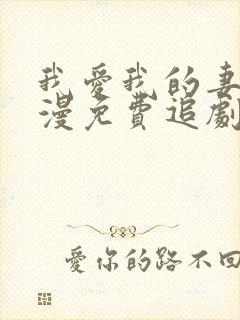 我愛我的妻
漫免費追劇
愛你的路不回